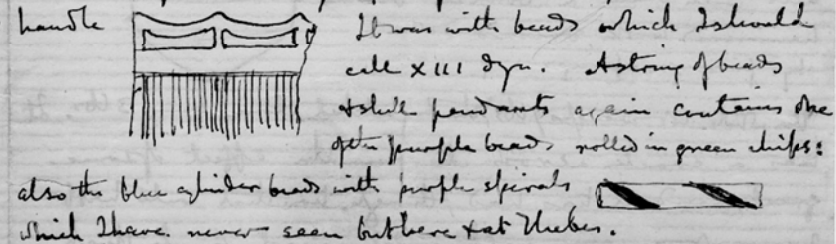 handle
It was with beads which I should
call XIII dyn. A string of beads
& shell pendants again contains one
of the purple beads rolled in green chips:
also the blue cylinder beads with purple spirals
which I have never seen but here & at Thebes.